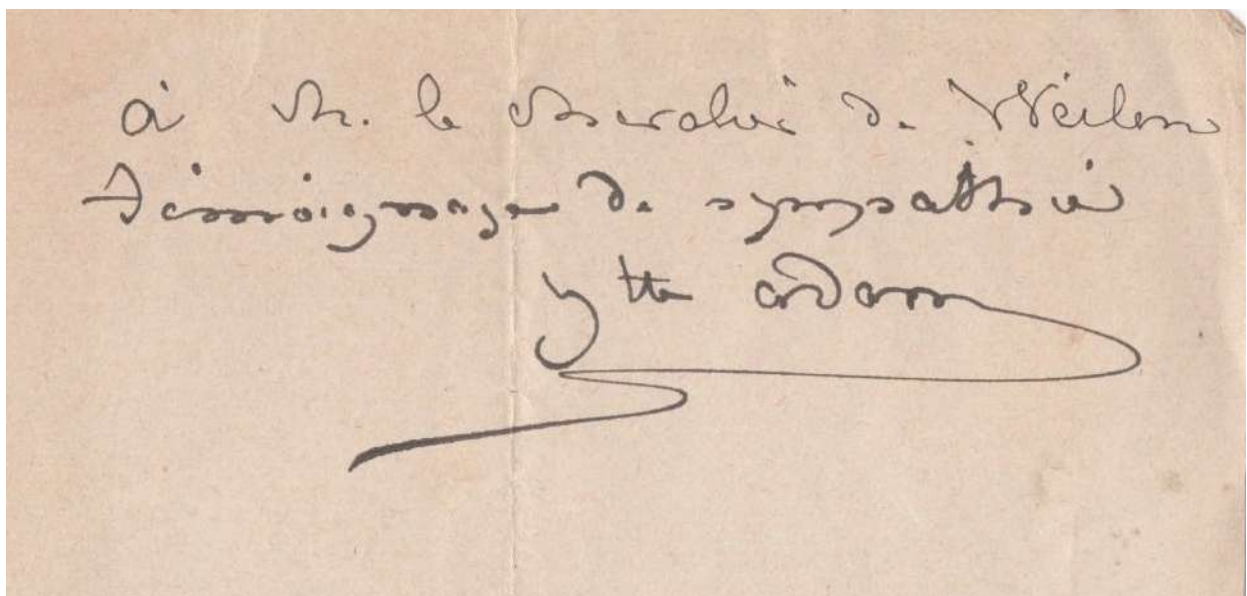 à M. le Chevalier de Weilen
témoignage de sympathie
Jtte adam